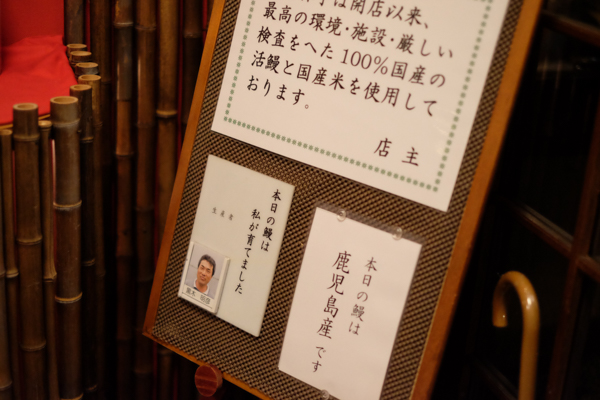 は開店以来、
最高の環境・施設・厳しい
検査をへた100%国産の
活鰻と国産米を使用して
おります。
店主
本日の鰻は
私が育てました
生産者
本日の鰻は
鹿児島産です